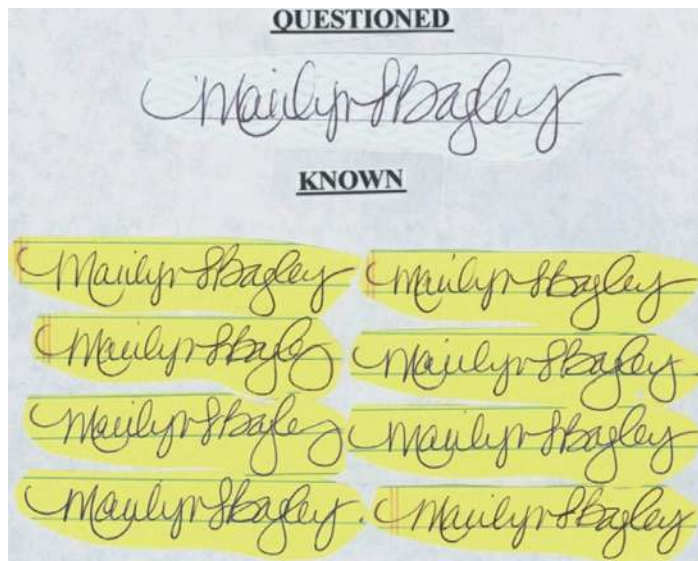 QUESTIONED
Marilyn S Bagley
KNOWN
Marilyn S Bagley Marilyn S Bagley
Marilyn S Bagley Marilyn S Bagley
Marilyn S Bagley Marilyn S Bagley
Marilyn S Bagley. Marilyn S Bagley